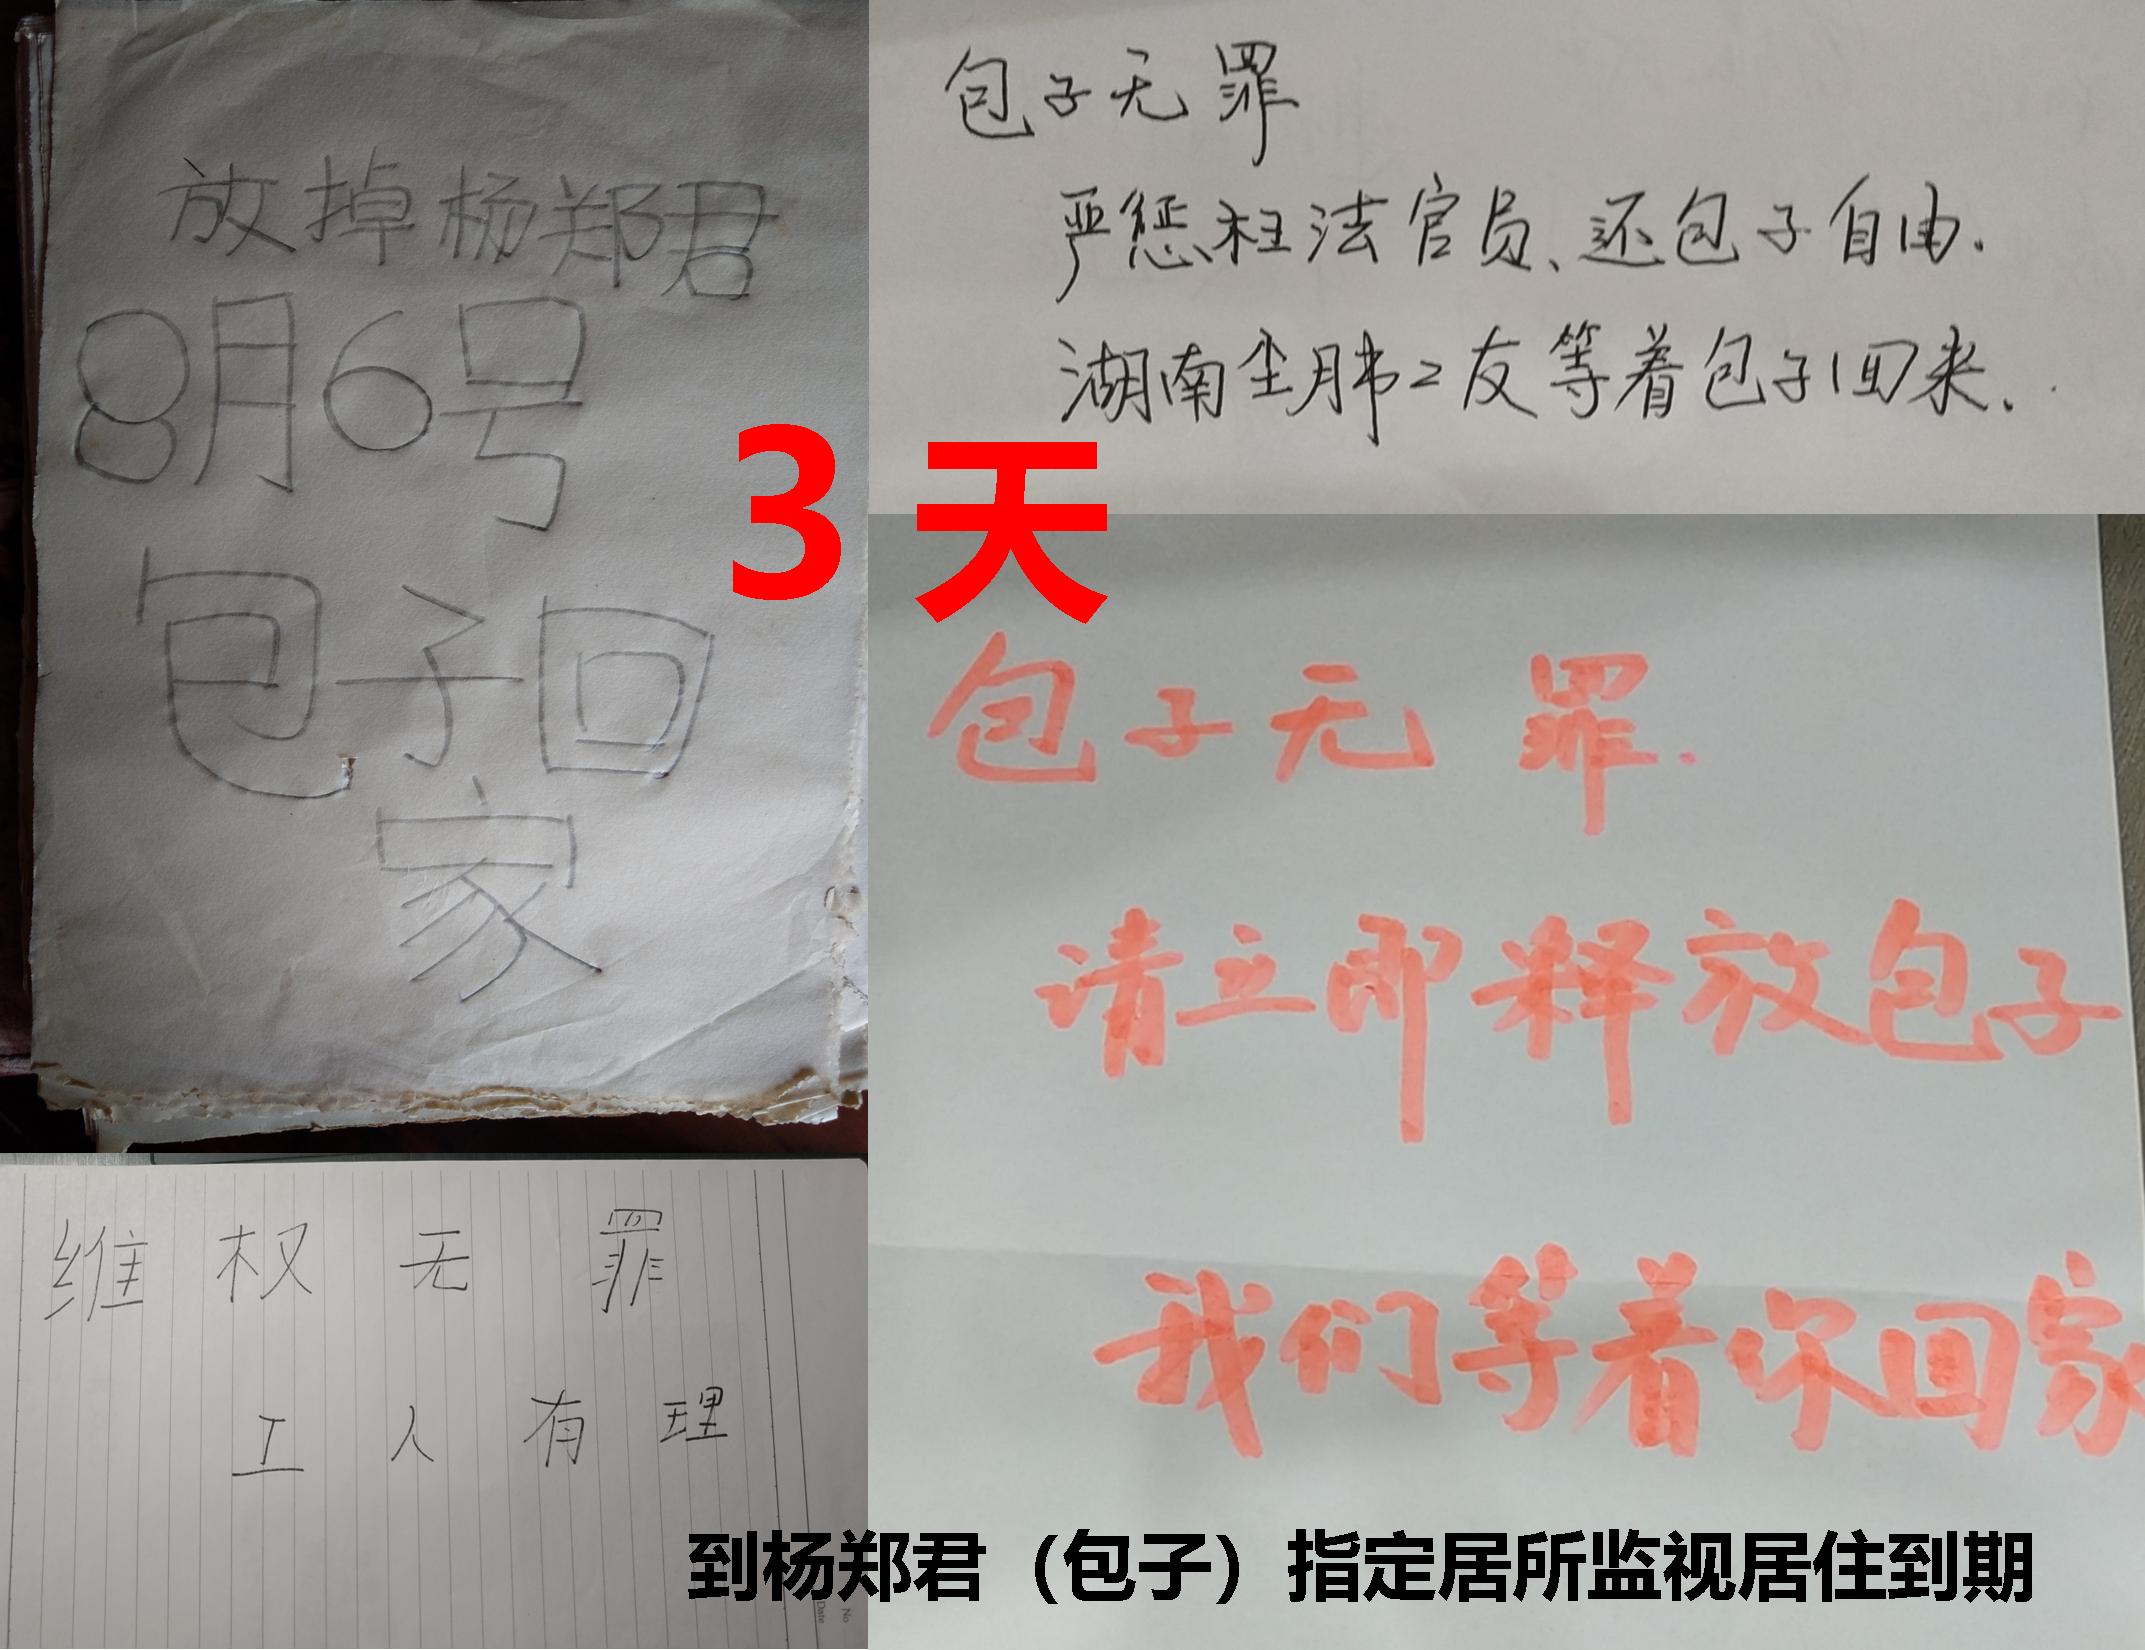 放掉杨郑君
8月6号
包子回
家
包子无罪
严惩枉法官员、还包子自由.
湖南尘肺工友等着包子回来.
3 天
包子无罪.
请立即释放包子
我们等着你回家
维权无罪
工人有理
到杨郑君（包子）指定居所监视居住到期
No
Date